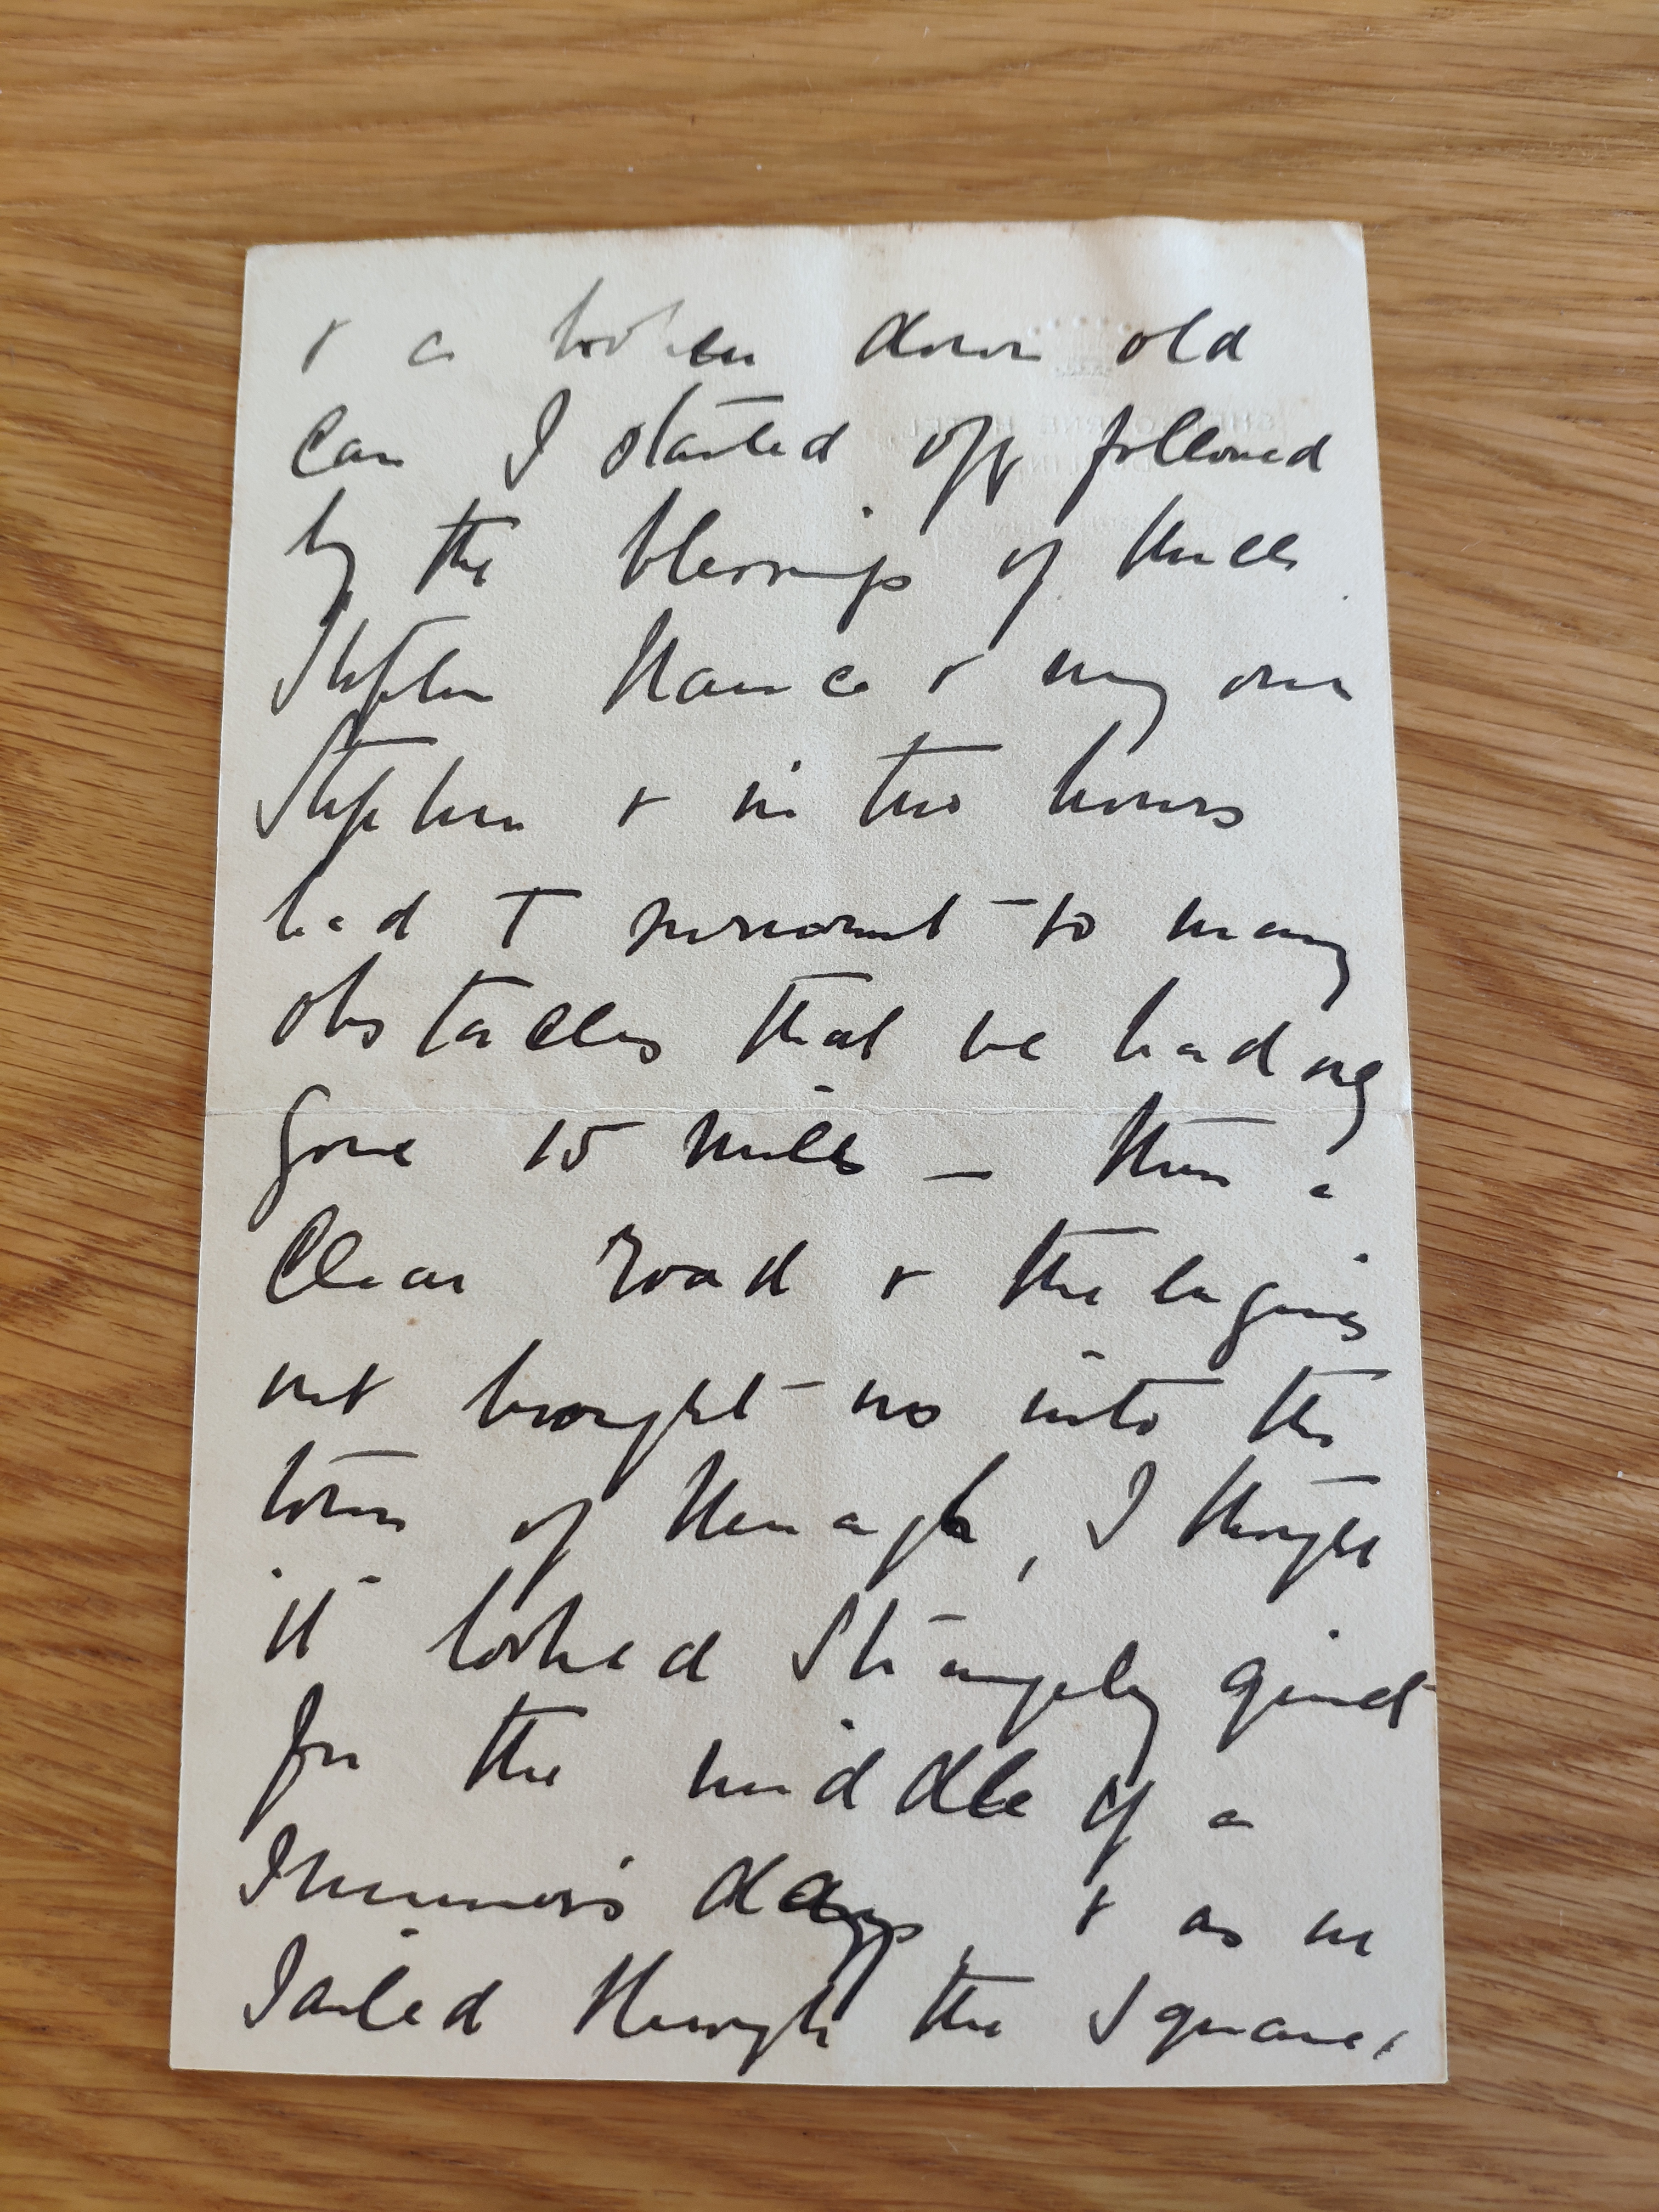 & a broken down old
car I started off followed
by the blessings of Uncle
Stephen Maurice & my own
Stephen & in two hours
had to surmount so many
obstacles that we had only
gone 15 miles — then a
clear road & the engines
not brought us into the
town of Nenagh, I thought
it looked strangely quiet
for the middle of a
Summer's day, & as we
sailed through the Square,
SHELBOURNE HOTEL,
DUBLIN